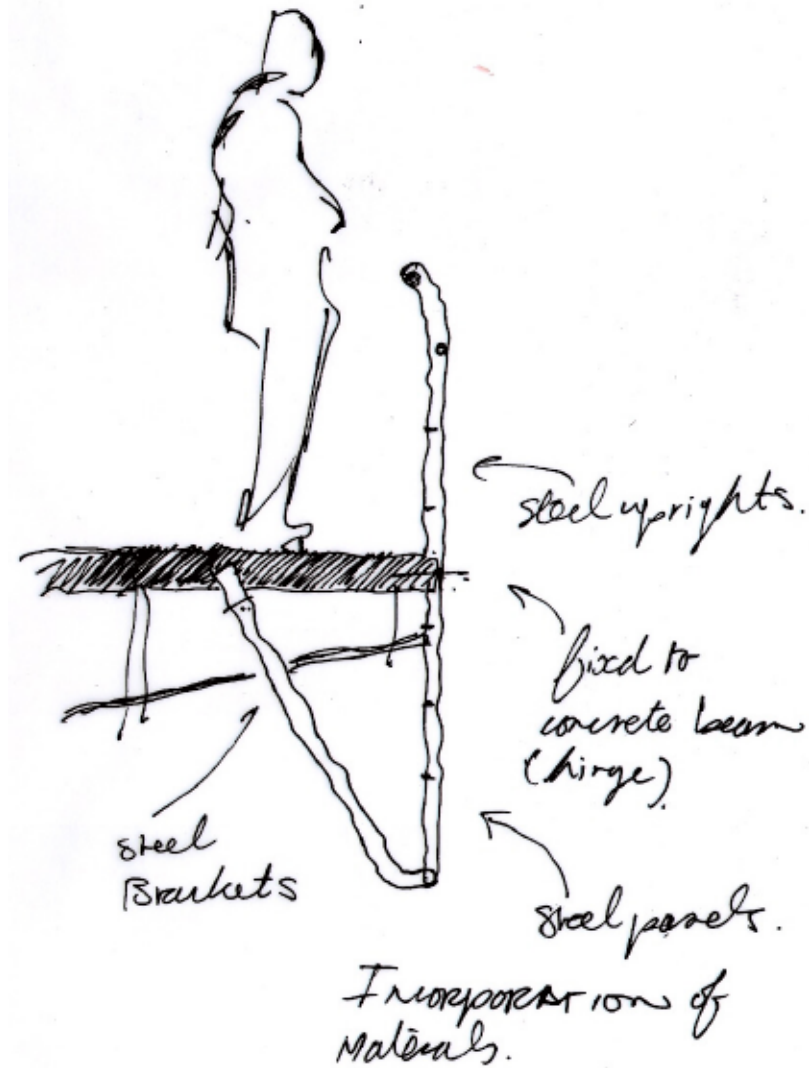 steel uprights.
fixed to
concrete beam
(hinge)
steel
Brackets
steel panels.
INCORPORATION of
Materials.